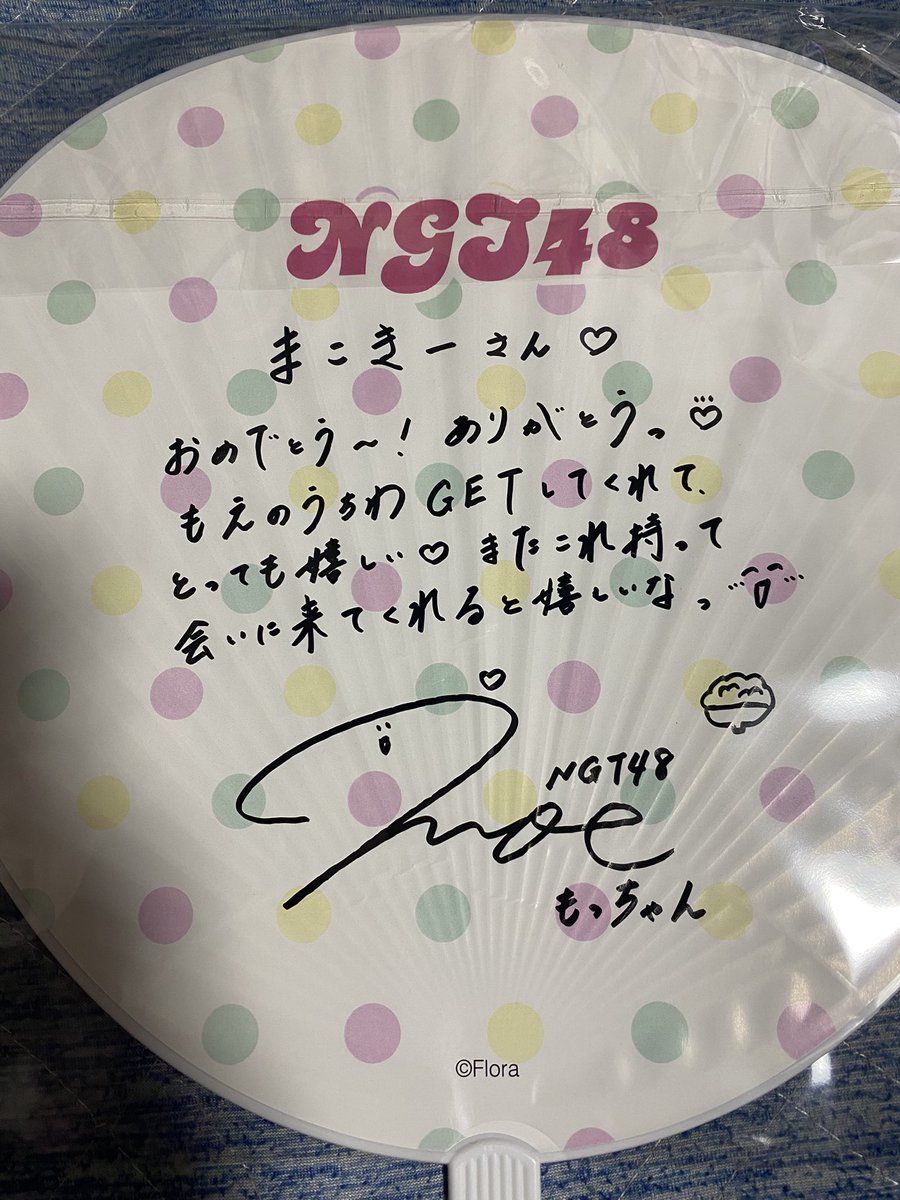 NGT48
まこきーさん♡
おめでとう〜！ありがとうっ♡
もえのうちわGETしてくれて、
とっても嬉しい♡またこれ持って
会いに来てくれると嬉しいなっ
NGT48
moe
もっちゃん
©Flora